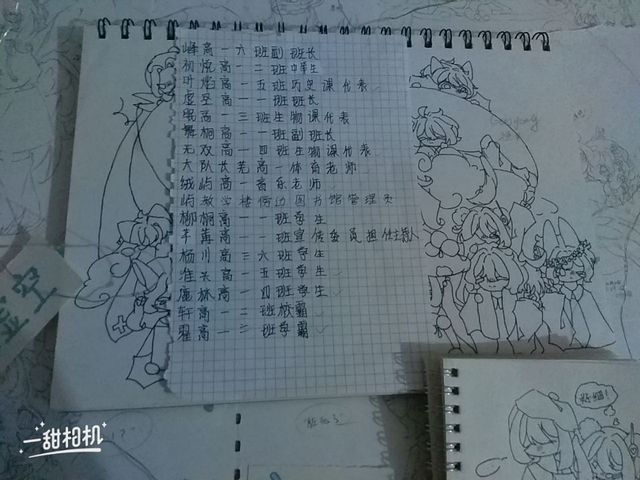 峰高一六班副班长
初悦高一二班中等生
叶焰高一五班历史课代表
虚空高一一班班长
眠高一三班生物课代表
景桐高一一班副班长
无双高一四班生物课代表
大队长芜高一体育老师
绒屿高一音乐老师
屿教学楼街边图书馆管理员
柳桐高一一班学生
千青高一一班宣传委员担任主持人
杨川高三六班学生
淮天高一五班学生
鹿林高一四班学生
轩高一二班校霸
翟高一三班学霸
虚空
一甜相机